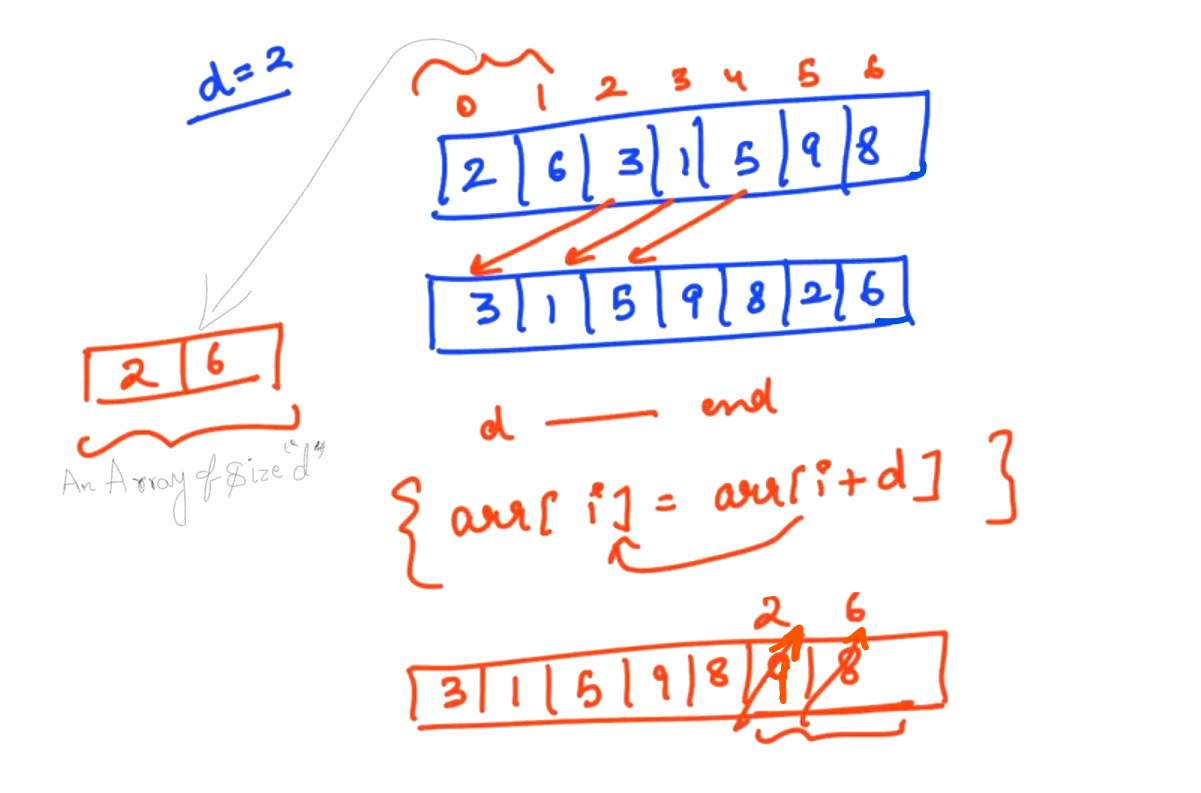 d = 2
0 1 2 3 4 5 6
2 6 3 1 5 9 8
3 1 5 9 8 2 6
2 6
An Array of size "d"
d — end
{ arr[ i ] = arr[ i + d ] }
2 6
3 1 5 9 8 9 8